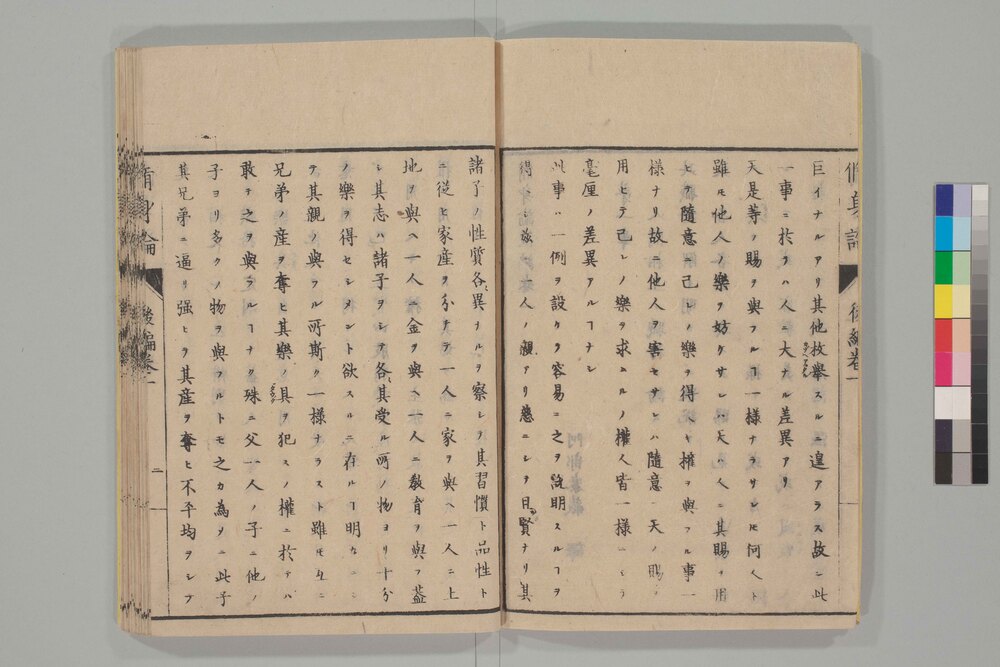 巨イナルアリ其他枚擧スルニ遑アラス故ニ此
一事ニ於テハ人ニ大ナル差異アリ
天是等ノ賜ヲ與フルヿ一様ナラサレ𪜈何人ト
雖モ他人ノ樂ヲ妨ケサレハ天ハ人ニ其賜ヲ用
ヒテ隨意ニ己レノ樂ヲ得ヘキ權ヲ與フル事一
様ナリ故ニ他人ヲ害セサレハ隨意ニ天ノ賜ヲ
用ヒテ己レノ樂ヲ求ムルノ權人皆一様ニシテ
毫厘ノ差異アルヿナシ
此事ハ一例ヲ設ケテ容易ニ之ヲ說明スルヿヲ
得ヘシ人ノ親アリ慈ニシテ且賢ナリ其
諸子ノ性質各異ナルヲ察シテ其習慣ト品性ト
ニ從ヒ家産ヲ分チテ一人ニ家ヲ與ヘ一人ニ土
地ヲ與ヘ一人ニ金ヲ與ヘ一人ニ敎育ヲ與フ蓋
シ其志ハ諸子ヲシテ各其受ル所ノ物ヨリ十分
ノ樂ヲ得セシメント欲スルニ存ルヿ明ナニシ
テ其親ノ與フル所斯ク一様ナラスト雖モ互ニ
兄弟ノ産ヲ奪ヒ其樂ノ具ヲ犯スノ權ニ於テハ
敢テ之ヲ與ヘラルヿナク殊ニ父一人ノ子ニ他ノ
子ヨリ多クノ物ヲ與フルトモ之カ為ヲニ此子
其兄弟ニ逼リ强ヒテ其産ヲ奪ヒ不平均ヲシテ
脩身論 後編卷一 二